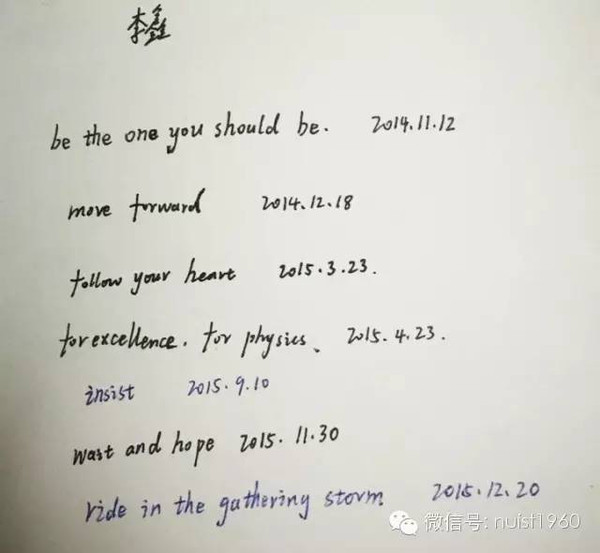 李鑫
be the one you should be. 2014.11.12
move forward 2014.12.18
follow your heart 2015.3.23.
for excellence. for physics、 2015.4.23.
insist 2015.9.10
wait and hope 2015.11.30
ride in the gathering storm 2015.12.20
微信号: nuist1960